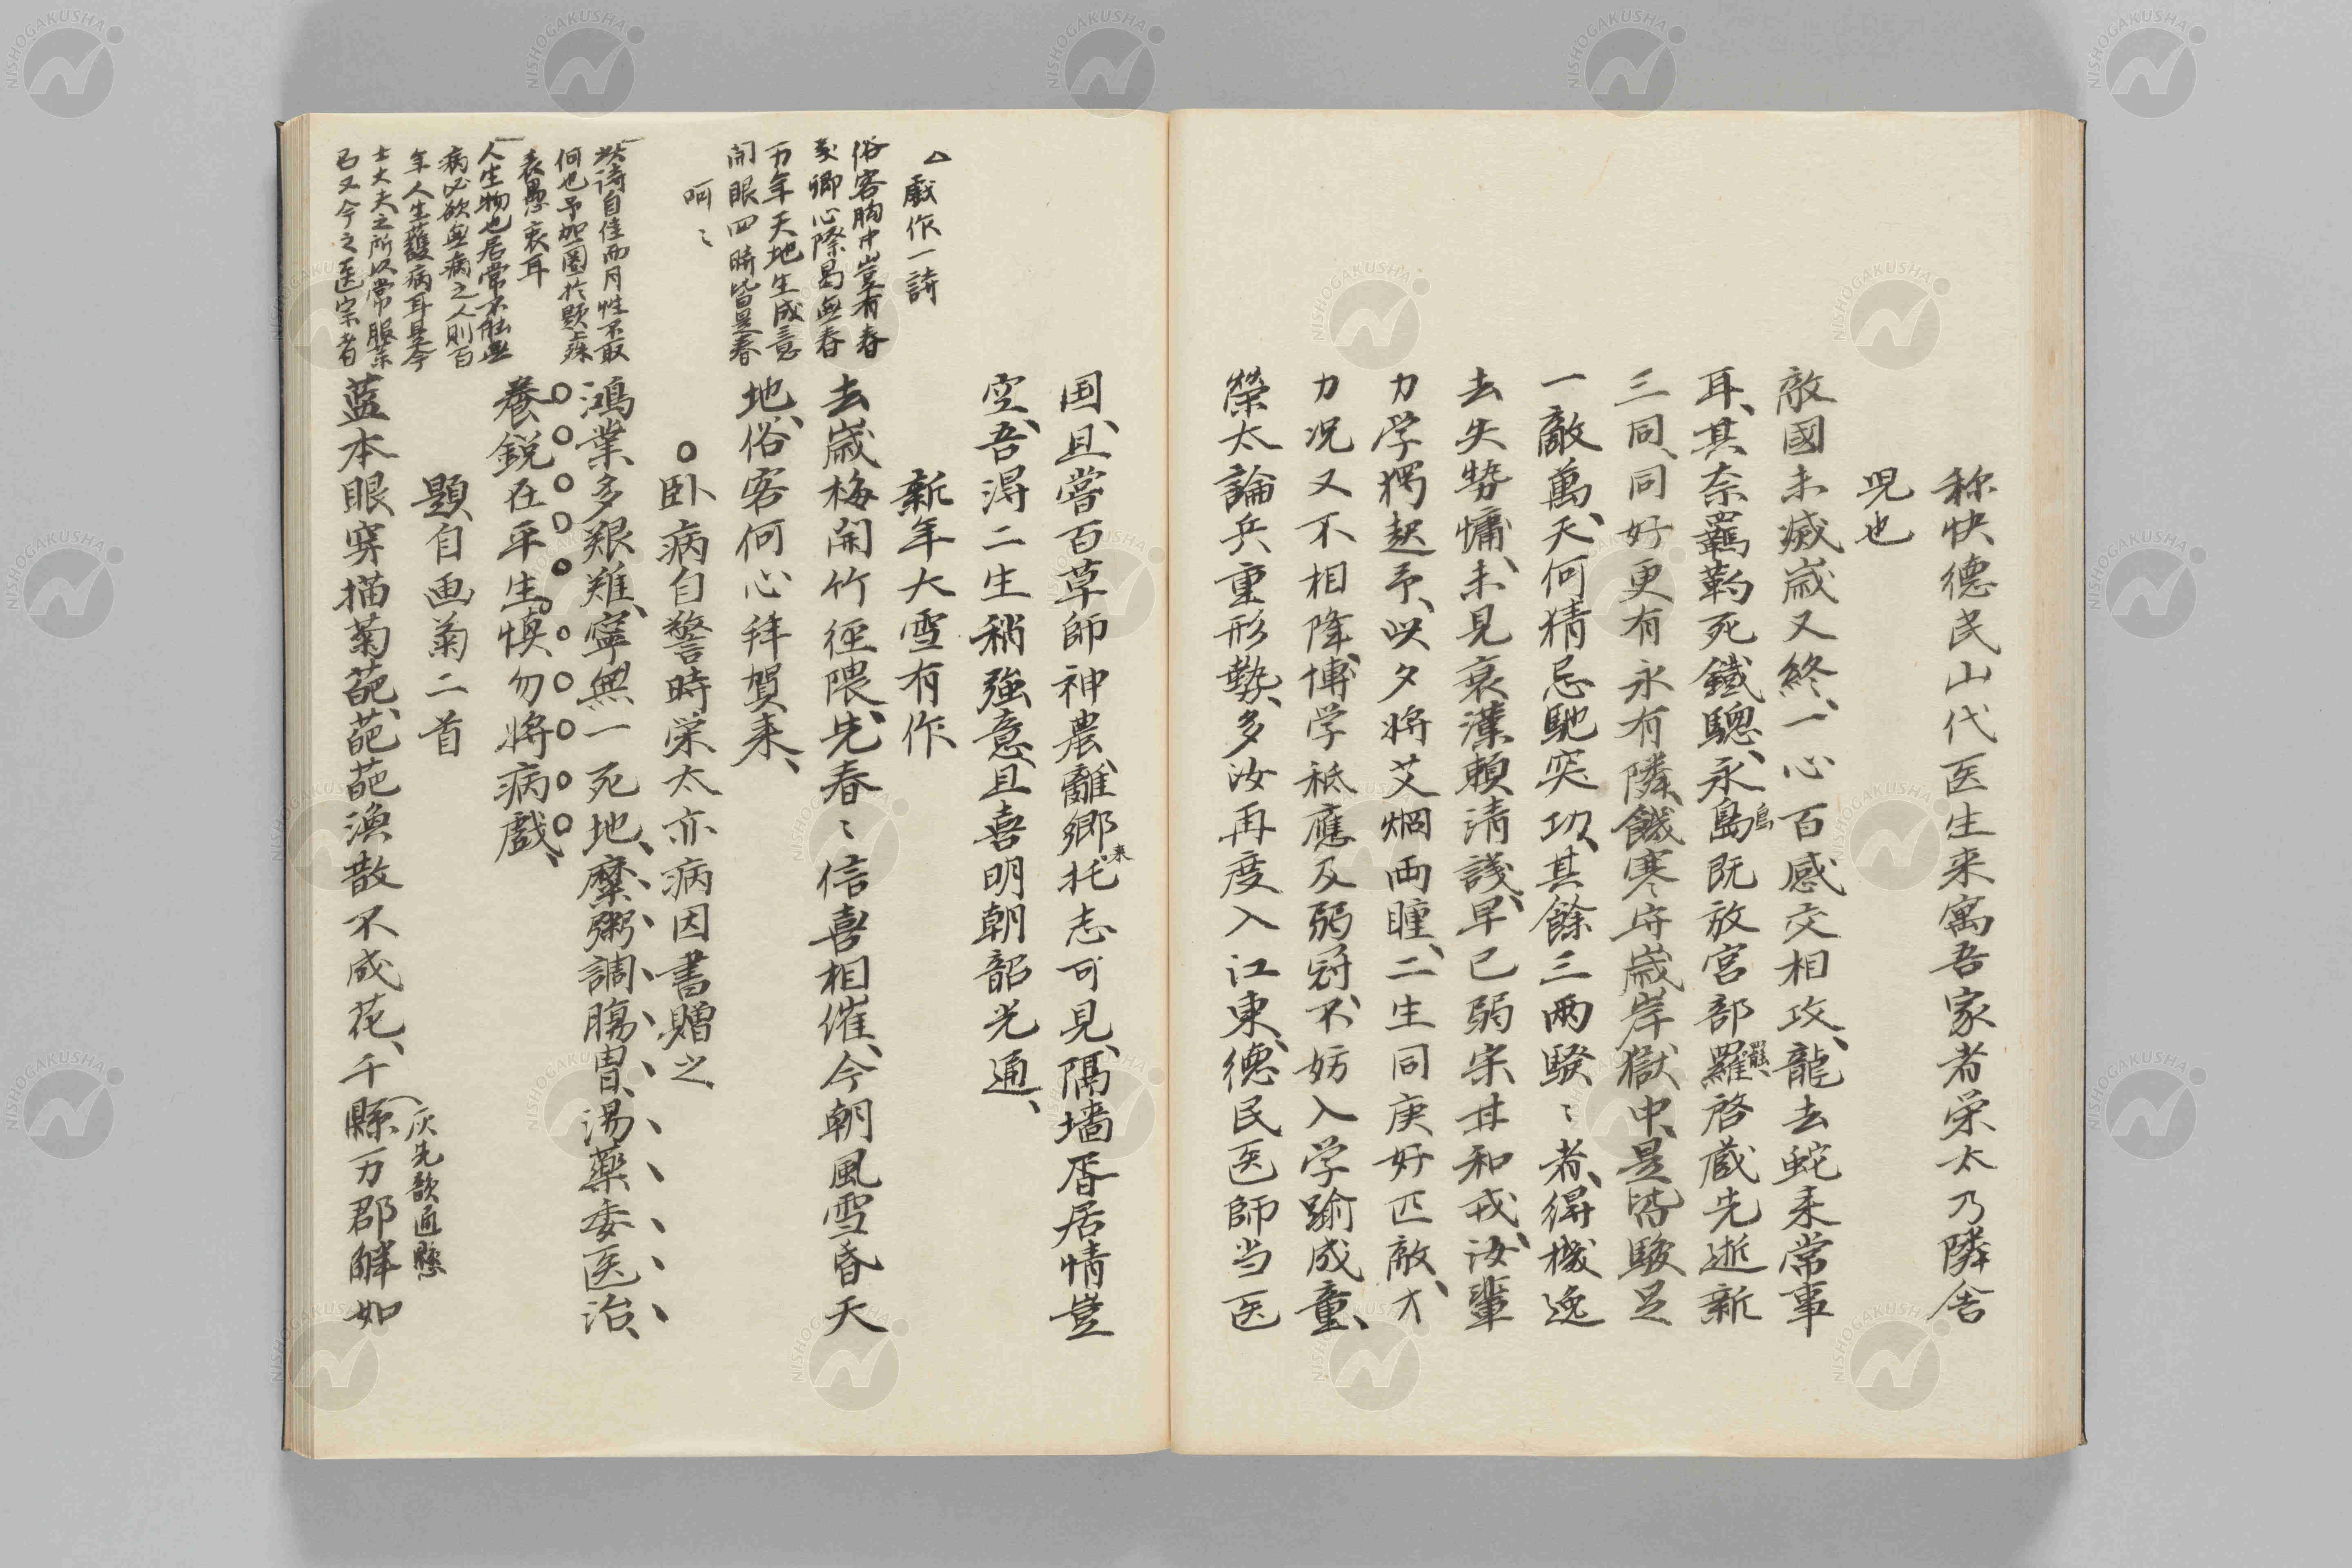 称快德民山代医生来寓吾家者栄太乃隣舎
児也
敵國未滅歳又終、一心百感交相攻、龍去蛇来常事
耳、其奈羈靮死鐵驄、永島既放宮部羅啓蔵先逝新
島
羆
三同、同好更有永有隣、饑寒守歳岸獄中、是皆駿足
一敵萬、天何猜忌馳突功、其餘三両駸〻者、得機逸
去失勢慵、未見衰漢頼清議、早已弱宋甘和戎、汝輩
力学獨起予、以夕将艾烟両瞳、二生同庚好匹敵、才
力况又不相降、博学秪應及弱冠、不妨入学踰成童、
榮太論兵重形勢、多汝再度入江東、德民医師当医
国、且嘗百草師神農、離郷托志可見、隔墻居情豈
来
空、吾得二生稍強意、且喜明朝韶光通、
新年大雪有作
去歳梅開竹徑隈、先春〻信喜相催、今朝風雪昏天
地、俗客何心拜賀来、
○卧病自警時栄太亦病因書贈之
鴻業多艱難、寧無一死地、糜粥調腸胃、湯藥委医治、
養鋭在平生、慎勿将病戯、
題自画菊二首
蓝本眼穿描菊葩、葩葩渙散不成花、千縣万郡解如
△戯作一詩
俗客胸中豈有春
爰卿心際曷無春
万年天地生成意
開眼四時皆是春
呵〻
此詩自佳而月性不取
何也予加圏於題上
表愚衷耳
人生物也居常不能無
病必欲無病之人則百
年人生護病耳是今
士大夫之所以常服薬
已又今之医宗者